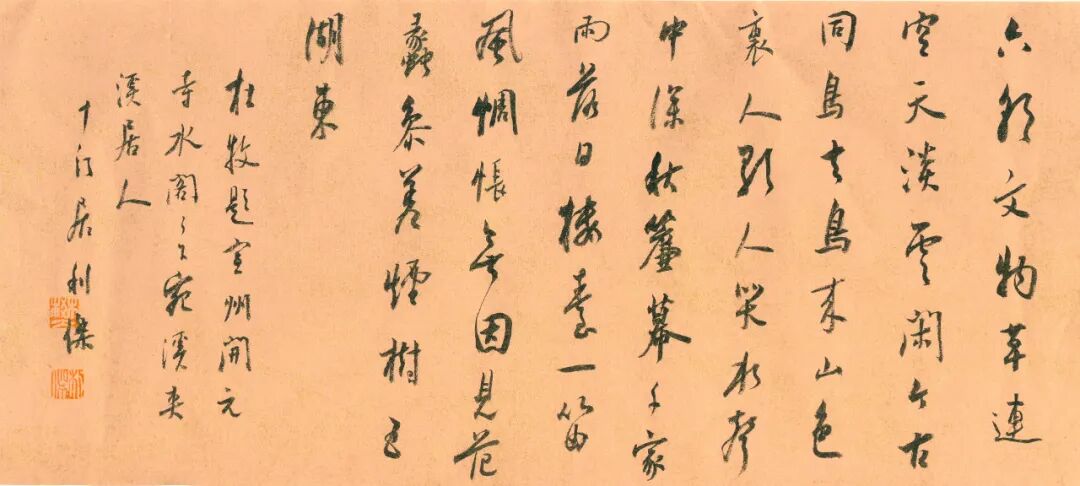 六朝文物草連
空天淡雲閑今古
同鳥去鳥来山色
裏人歌人哭水聲
中深秋簾幕千家
雨落日樓臺一笛
風惆悵無因見范
蠡參差煙樹五
湖東
杜牧題宣州開元
寺水閣々下宛溪夾
溪居人
十 居利傑